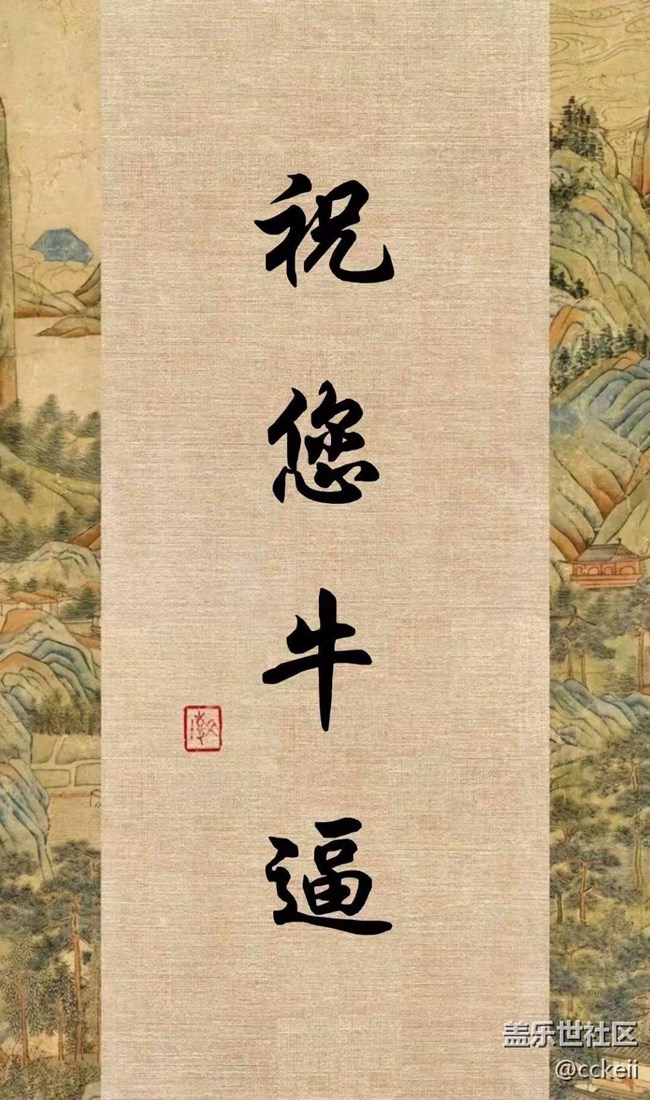 祝您牛逼
盖乐世社区
@cckeii